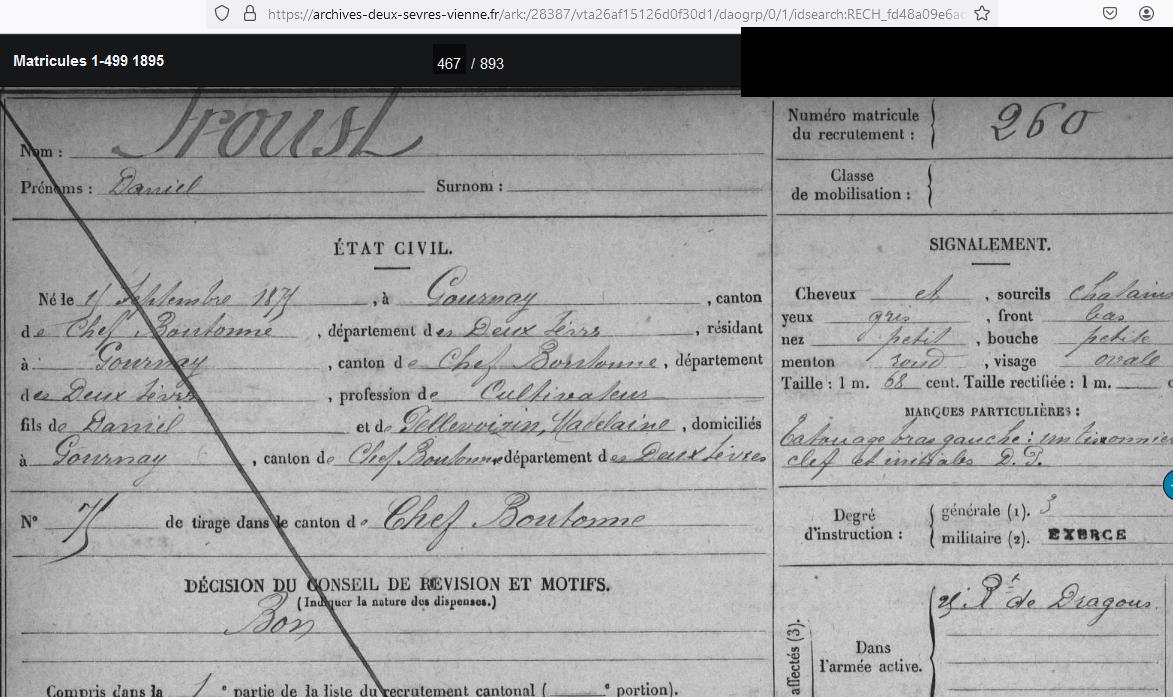 https://archives-deux-sevres-vienne.fr/ark:/28387/vta26af15126d0f30d1/daogrp/0/1/idsearch:RECH_fd48a09e6ac
Matricules 1-499 1895
467 / 893
Nom : Proust
Prénoms : Daniel Surnom :
ÉTAT CIVIL.
Né le Septembre 1875, à Gournay, canton
de Chef Boutonne, département des Deux Sèvres, résidant
à Gournay, canton de Chef Boutonne, département
des Deux Sèvres, profession de Cultivateur
fils de Daniel et de Pellevoizin, Madelaine, domiciliés
à Gournay, canton de Chef Boutonne département des Deux Sèvres
N° 75 de tirage dans le canton de Chef Boutonne
DÉCISION DU CONSEIL DE REVISION ET MOTIFS.
(Indiquer la nature des dispenses.)
Bon
Compris dans la 1e partie de la liste du recrutement cantonal ( e portion).
Numéro matricule
du recrutement : 260
Classe
de mobilisation :
SIGNALEMENT.
Cheveux et, sourcils chatains
yeux gris, front bas
nez petit, bouche petite
menton rond, visage ovale
Taille : 1 m. 68 cent. Taille rectifiée : 1 m. c
MARQUES PARTICULIÈRES :
Tatouage bras gauche : un
clef et initiales D. P.
Degré
d'instruction :
générale (1). 3
militaire (2). EXERCE
affectés (3).
Dans
l'armée active.
Rt de Dragons